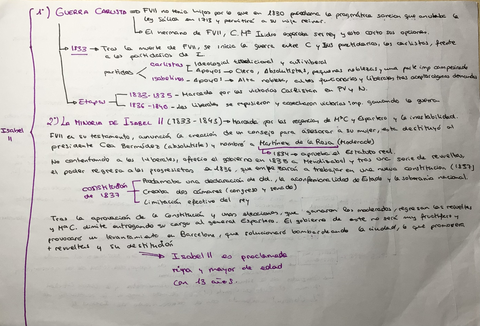 1º) GUERRA CARLISTA → FVII no tenía hijos por lo que en 1830 proclama la pragmática sanción que anulaba la
ley Sálica en 1713 y permitiría a su hija reinar.
→ El hermano de FVII, C. Mª Isidro aspiraba ser rey y esto corta sus opciones.
→ 1833 → Tras la muerte de FVII, se inicia la guerra entre C y sus partidarios, los carlistas, frente
a los partidarios de I.
partidos carlistas → Ideología tradicional y antiliberal
→ Apoyos → Clero, Absolutistas, pequeños nobles y una parte imp campesado
isabelinos → Apoyos → Alta nobleza, altos funcionarios y liberales tras aceptar algunas demandas
→ Etapas → 1833-1835 → Marcada por las victorias Carlistas en PV y N.
→ 1836-1840 → los liberales se repusieron y cosecharon victorias imp. ganando la guerra
2º) LA MINORÍA DE ISABEL II (1833-1843) → Marcado por las regencias de MªC y Espartero y la inestabilidad.
FVII en su testamento, anuncia la creación de un consejo para asesorar a su mujer, esta destituyó al
presidente Cea Bermúdez (absolutista) y nombró a Martínez de la Rosa (Moderado)
→ 1834 → aprueba el Estatuto real.
No contentando a los liberales, ofreció el gobierno en 1835 a Mendizábal y tras una serie de revueltas
el poder regresa a los progresistas en 1836, que empezaron a trabajar en una nueva constitución (1837)
CONSTITUCIÓN de 1837
→ Proclamaba una declaración de dd, la aconfesionalidad de Estado y la soberanía nacional
→ Creaba dos cámaras (congreso y senado)
→ Limitación efectiva del rey
Tras la aprobación de la constitución y unas elecciones, que ganaron los moderados, regresan las revueltas
y MªC. dimite entregando su cargo al general Espartero. El gobierno de este no será muy fructífero y
provocará un levantamiento en Barcelona, que solucionará bombardeando la ciudad, lo que promoverá
+ revueltas y su destitución
→ Isabel II es proclamada
reina y mayor de edad
con 13 años.
Isabel II